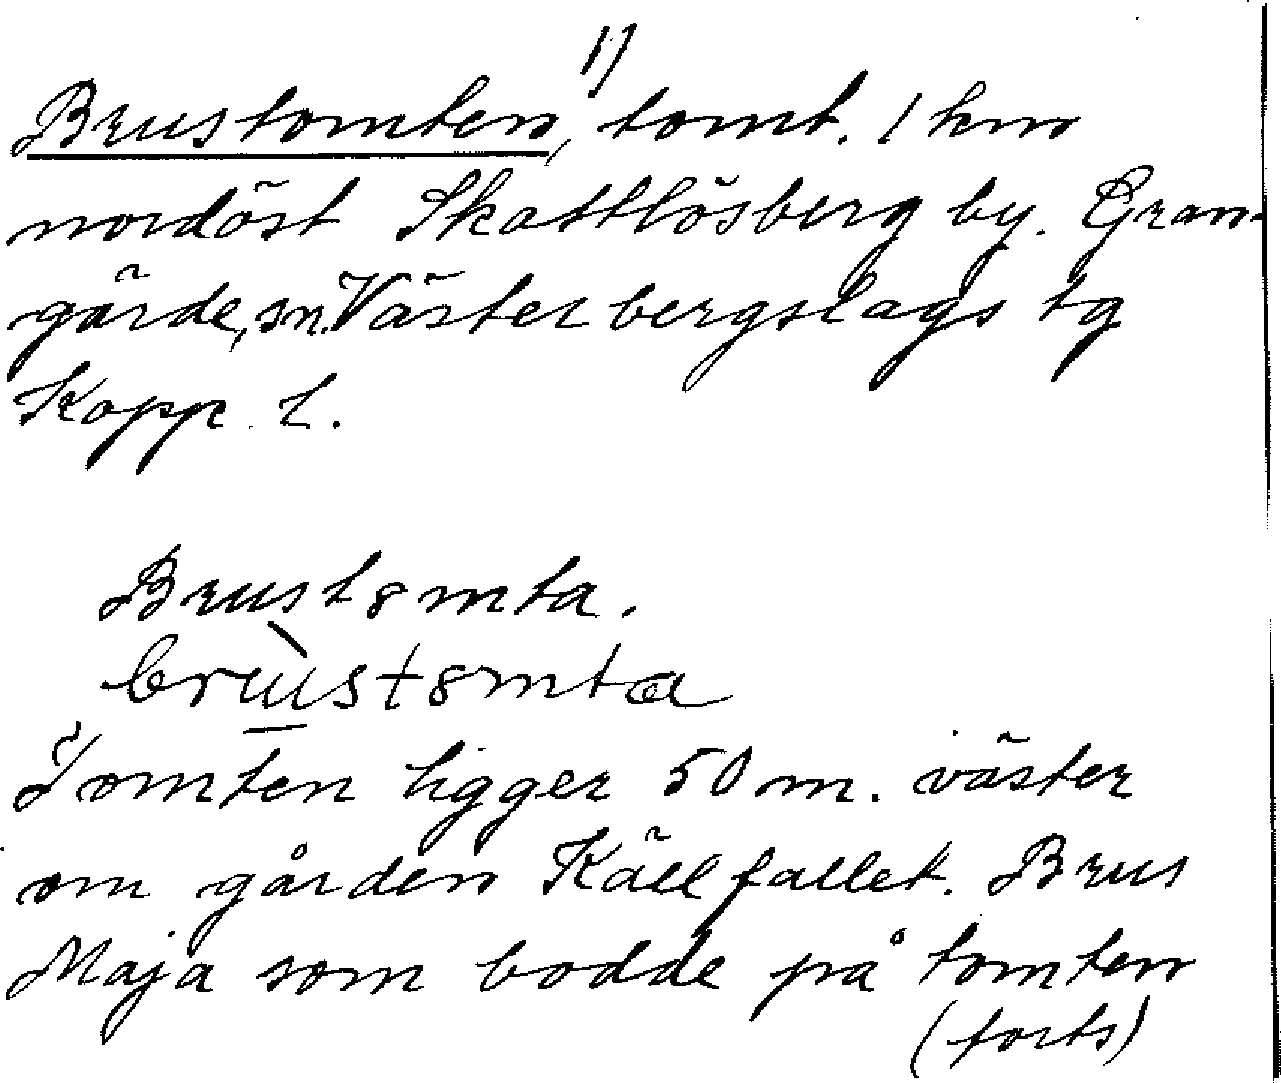 1)
Brustomten, tomt. 1 km
nordöst Skattlösberg by. Gran-
gärde, sn. Västerbergslags tg
Kopp. l.
Brust8mta.
brùst8mta
Tomten ligger 50 m. väster
om gården Källfallet. Brus
Maja som bodde på tomten
(forts)